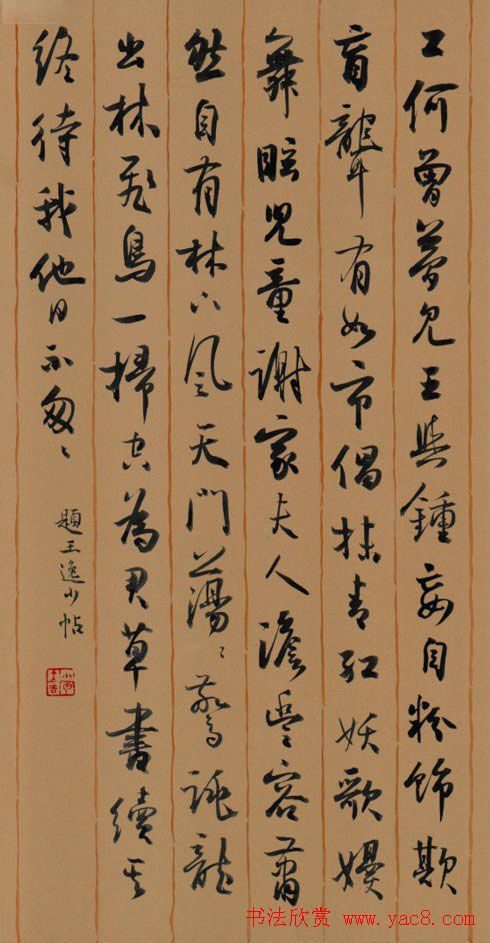 工何曾夢見王與鍾妄自粉飾欺
盲聾有如市倡抹青紅妖歌嫚
舞眩兒童謝家夫人澹豐容蕭
然自有林下風天門蕩々驚跳龍
出林飛鳥一掃空為君草書續其
終待我他日不匆々
題王逸少帖
书法欣赏 www.yac8.com